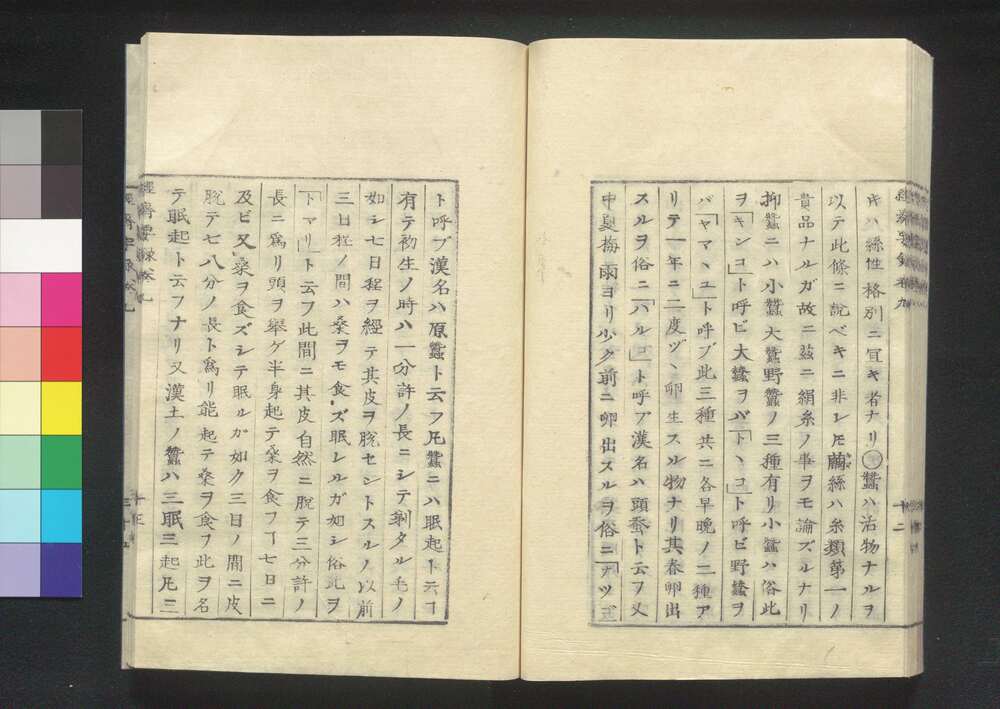 キハ絲性格別ニ宜キ者ナリ○蠶ハ活物ナルヲ
以テ此條ニ説ベキニ非レ𪜈繭絲ハ糸類第一ノ
貴品ナルガ故ニ茲ニ絹糸ノ事ヲモ論ズルナリ
抑蠶ニハ小蠶大蠶野蠶ノ三種有リ小蠶ハ俗此
ヲ「キンコ」ト呼ビ大蠶ヲバ「トヽコ」ト呼ビ野蠶ヲ
バ「ヤマヽユ」ト呼ブ此三種共ニ各早晩ノ二種ア
リテ一年ニ二度ヅヽ卵生スル物ナリ其春卵出
スルヲ俗ニ「ハルゴ」ト呼ブ漢名ハ頭蚕ト云フ又
中夏梅雨ヨリ少ク前ニ卵出スルヲ俗ニ「ナツゴ」
ト呼ブ漢名ハ原蠶ト云フ凡蠶ニハ眠起ト云ヿ
有テ初生ノ時ハ一分許ノ長ニシテ剃タル毛ノ
如シ七日程ヲ經テ其皮ヲ脱セントスルノ以前
三日程ノ間ハ桑ヲモ食ズ眠レルガ如シ俗此ヲ
「トマリ」ト云フ此間ニ其皮自然ニ脱テ三分許ノ
長ニ爲リ頭ヲ擧ゲ半身起テ桑ヲ食フヿ七日ニ
及ビ又桑ヲ食ズシテ眠ルガ如ク三日ノ間ニ皮
脱テ七八分ノ長ト爲リ能起テ桑ヲ食フ此ヲ名
テ眠起ト云フナリ又漢土ノ蠶ハ三眠三起凡三